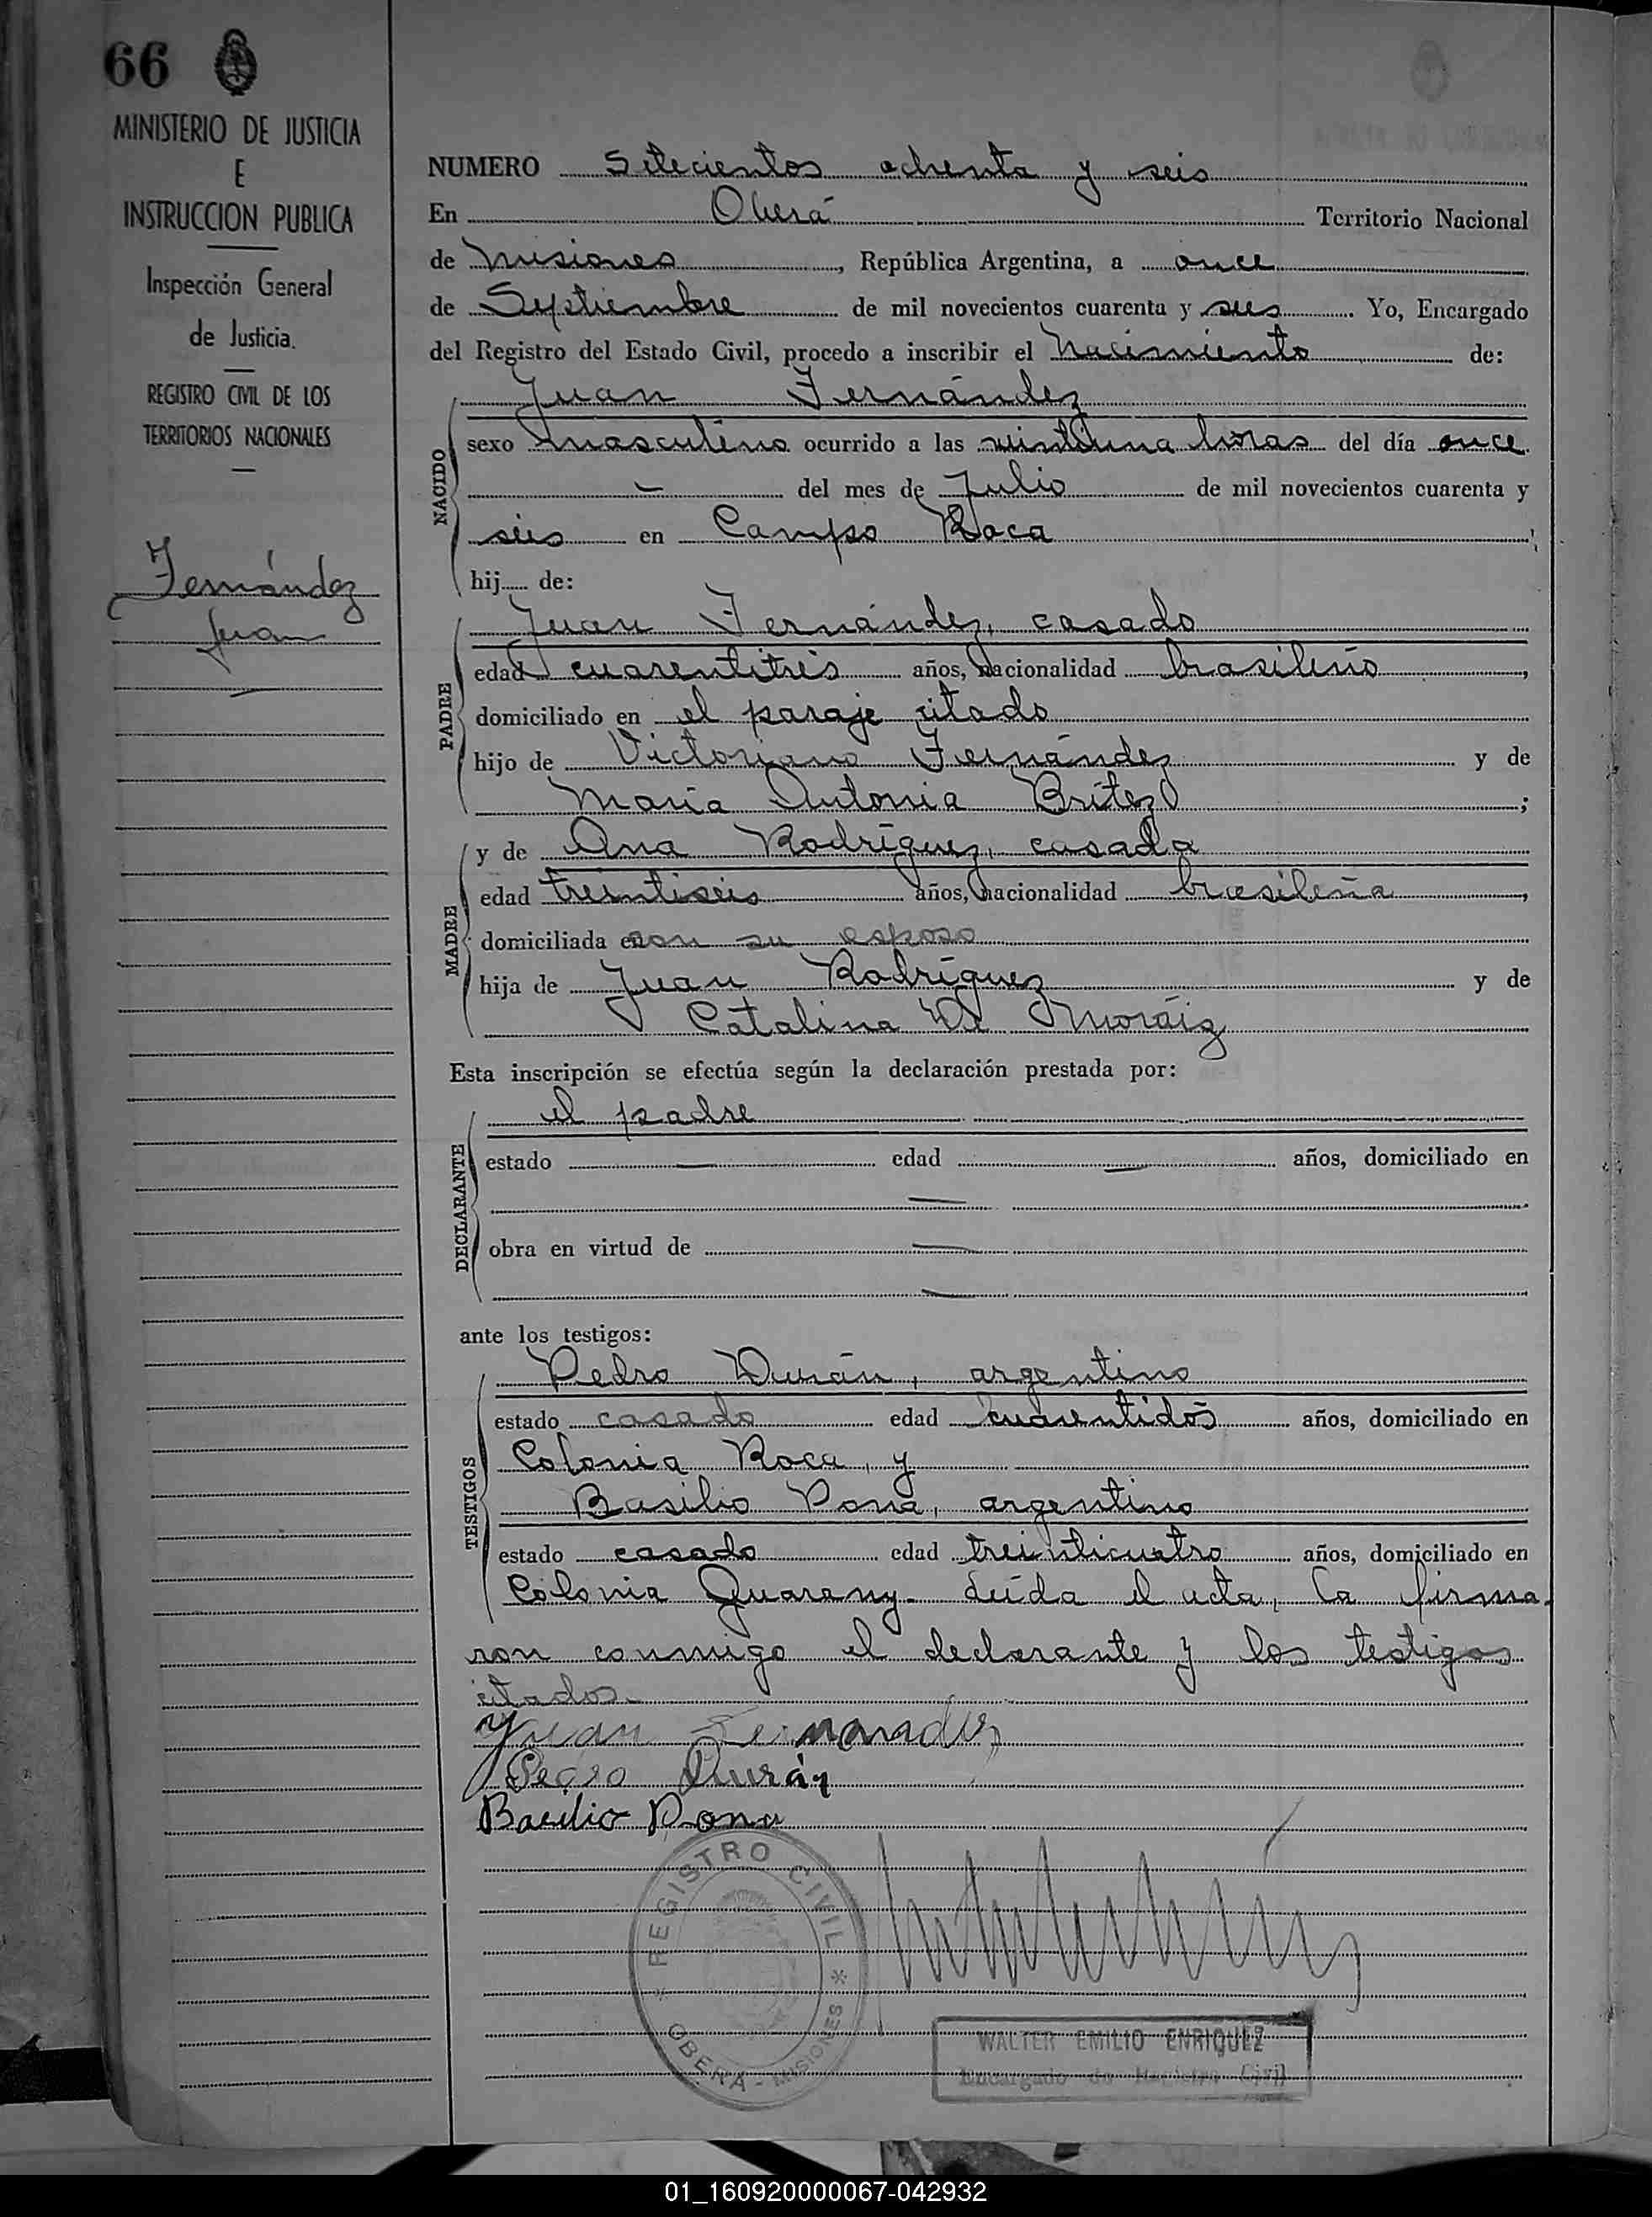 66
MINISTERIO DE JUSTICIA
E
INSTRUCCION PUBLICA
Inspección General
de Justicia.
REGISTRO CIVIL DE LOS
TERRITORIOS NACIONALES
Fernández
Juan
NUMERO Setecientos ochenta y seis
En Oberá Territorio Nacional
de Misiones, República Argentina, a once
de Septiembre de mil novecientos cuarenta y seis Yo, Encargado
del Registro del Estado Civil, procedo a inscribir el Nacimiento de:
NACIDO
Juan Fernández
sexo masculino ocurrido a las veintiuna horas del día once
— del mes de Julio de mil novecientos cuarenta y
seis en Campo Roca;
hij.... de:
PADRE
Juan Fernández, casado
edad cuarentitrés años, nacionalidad brasileño,
domiciliado en el paraje citado
hijo de Victoriano Fernández y de
María Antonia Brítez;
MADRE
y de Ana Rodríguez, casada
edad treintiseis años, nacionalidad brasileña,
domiciliada con su esposo
hija de Juan Rodríguez y de
Catalina De Moráiz
Esta inscripción se efectúa según la declaración prestada por:
DECLARANTE
el padre
estado — edad — años, domiciliado en
—
obra en virtud de —
—
ante los testigos:
TESTIGOS
Pedro Durán, argentino
estado casado edad cuarentidós años, domiciliado en
Colonia Roca, y
Basilio Pona, argentino
estado casado edad treinticuatro años, domiciliado en
Colonia Guarany. Leída el acta, la firma-
ron conmigo el declarante y los testigos
citados.
Juan Fernandes
Pedro Durán
Basilio Pona
REGISTRO CIVIL
OBERA - MISIONES
WALTER EMILIO ENRIQUEZ
Encargado de Registro Civil
01_160920000067-042932